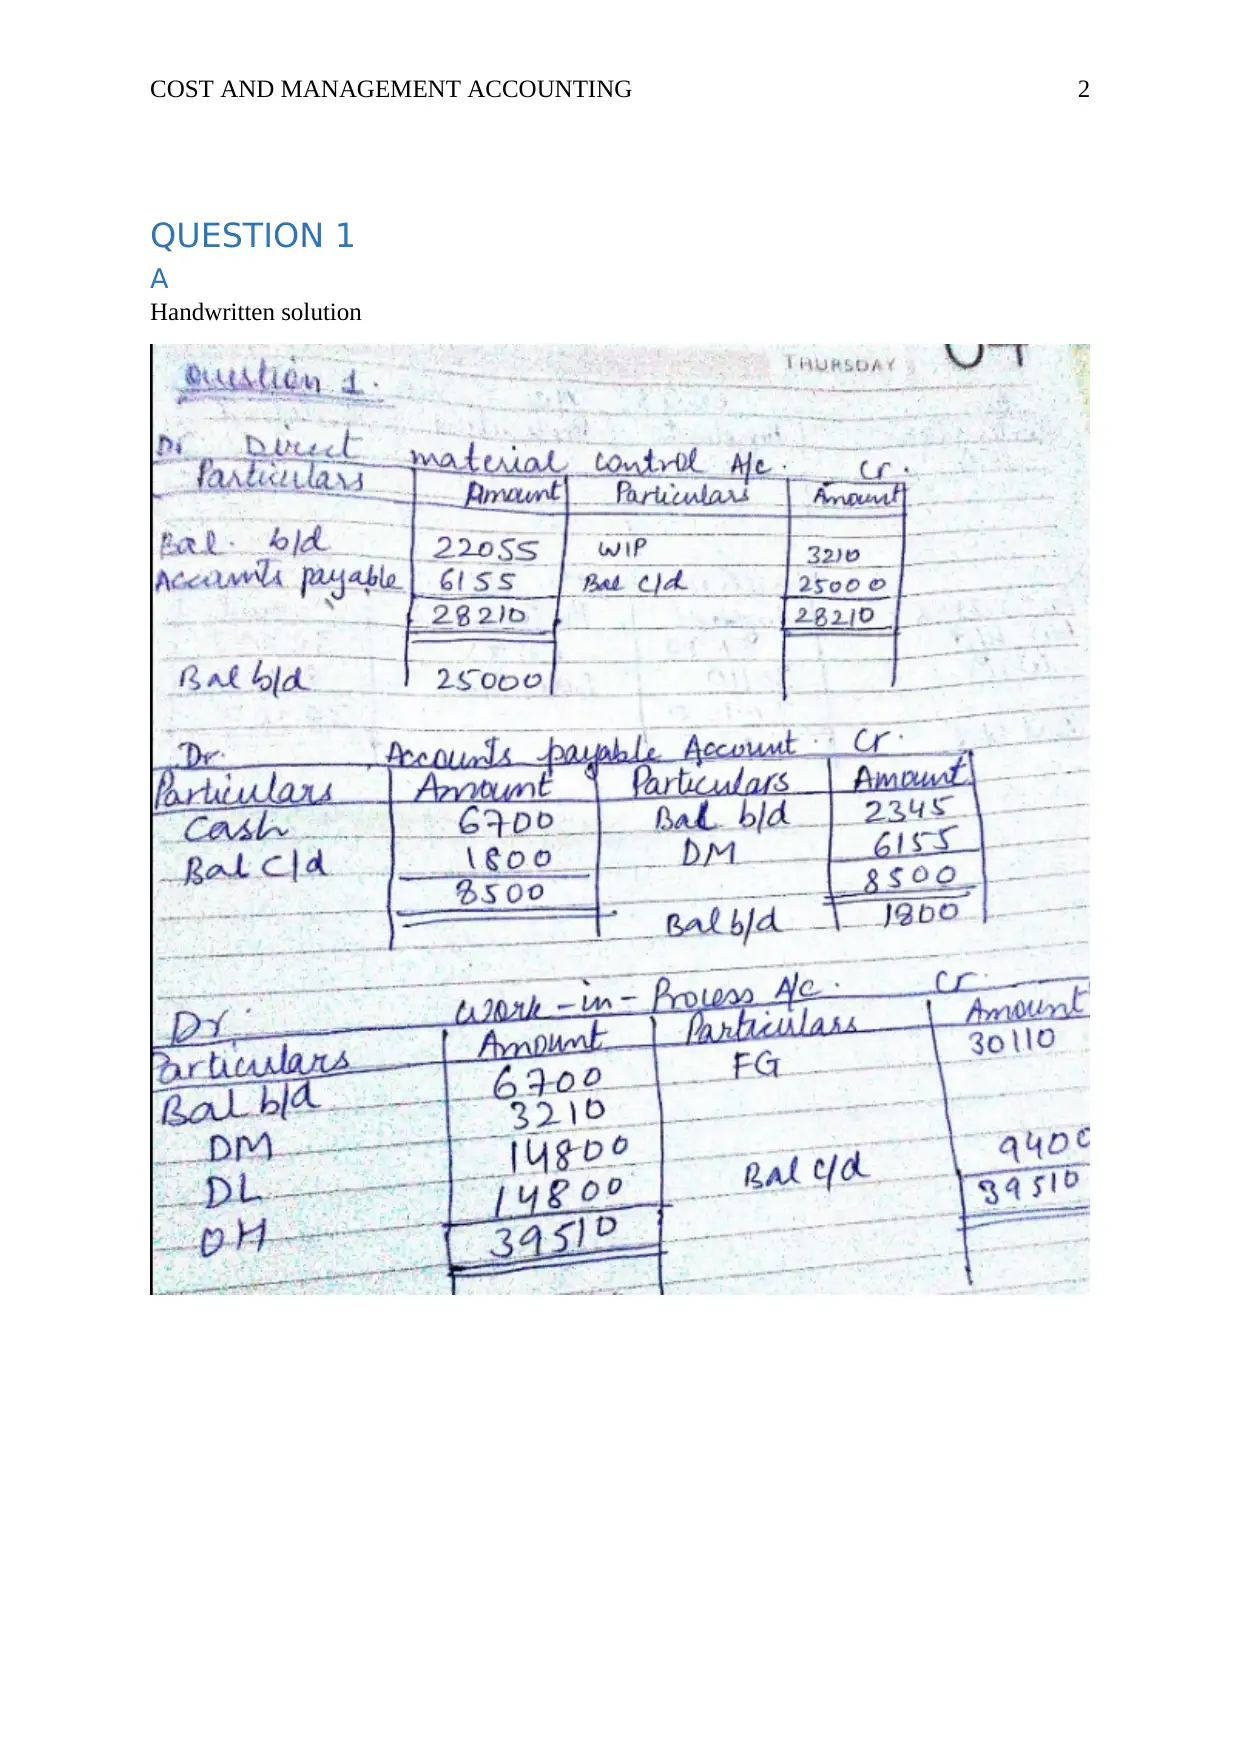 COST AND MANAGEMENT ACCOUNTING 2
QUESTION 1
A
Handwritten solution
THURSDAY 04
Question 1.
Dr Direct material control A/c. Cr.
Particulars Amount Particulars Amount
Bal. b/d 22055 WIP 3210
Accounts payable 6155 Bal c/d 25000
28210 28210
Bal b/d 25000
Dr. Accounts payable Account Cr.
Particulars Amount Particulars Amount
Cash 6700 Bal b/d 2345
Bal C/d 1800 DM 6155
8500 8500
Bal b/d 1800
Dr. Work-in-Process A/c. Cr.
Particulars Amount Particulars Amount
Bal b/d 6700 FG 30110
DM 3210
DL 14800 Bal c/d 9400
OH 14800 39510
39510